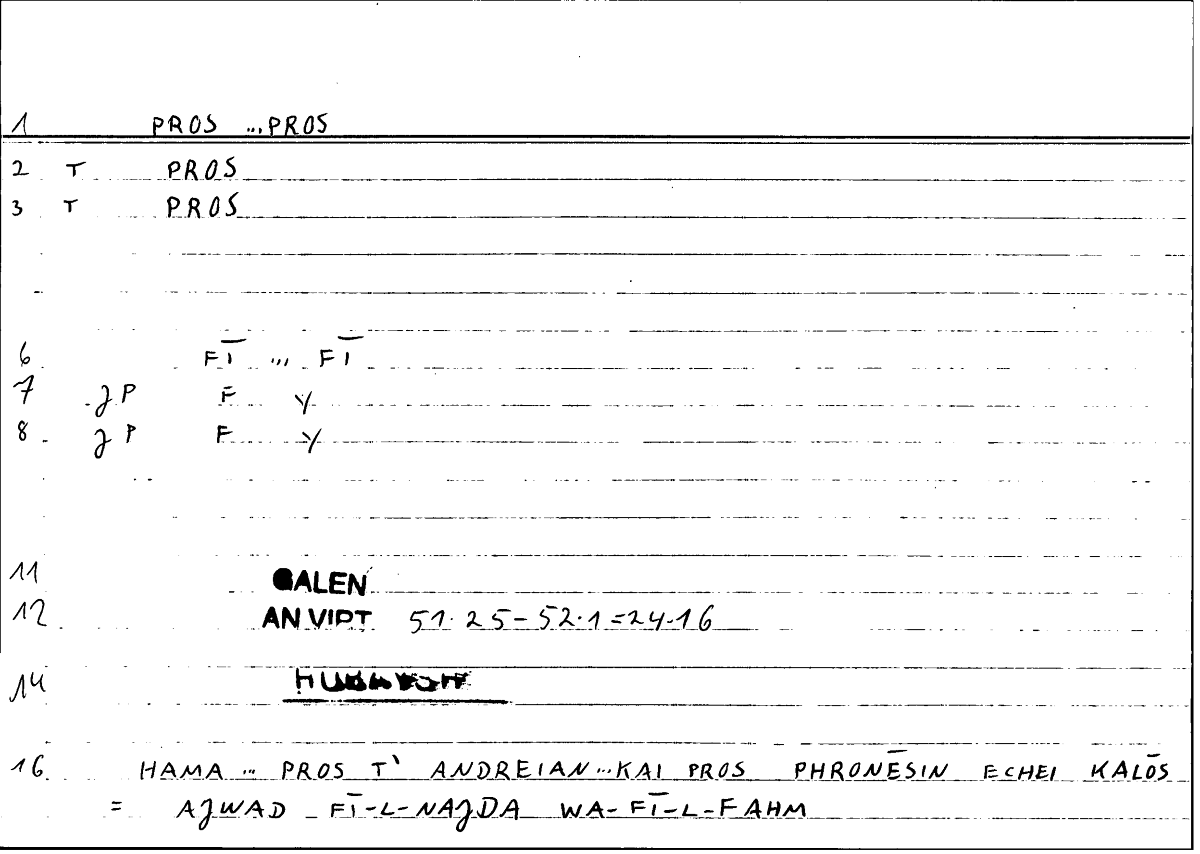 1 PROS ... PROS
2 T PROS
3 T PROS
6 FĪ ... FĪ
7 J P F Y
8 J P F Y
11 GALEN
12 AN VIRT 51.25-52.1=24.16
14
16 HAMA ... PROS T' ANDREIAN ... KAI PROS PHRONĒSIN ECHEI KALŌS
= AJWAD FĪ-L-NAJDA WA-FĪ-L-FAHM